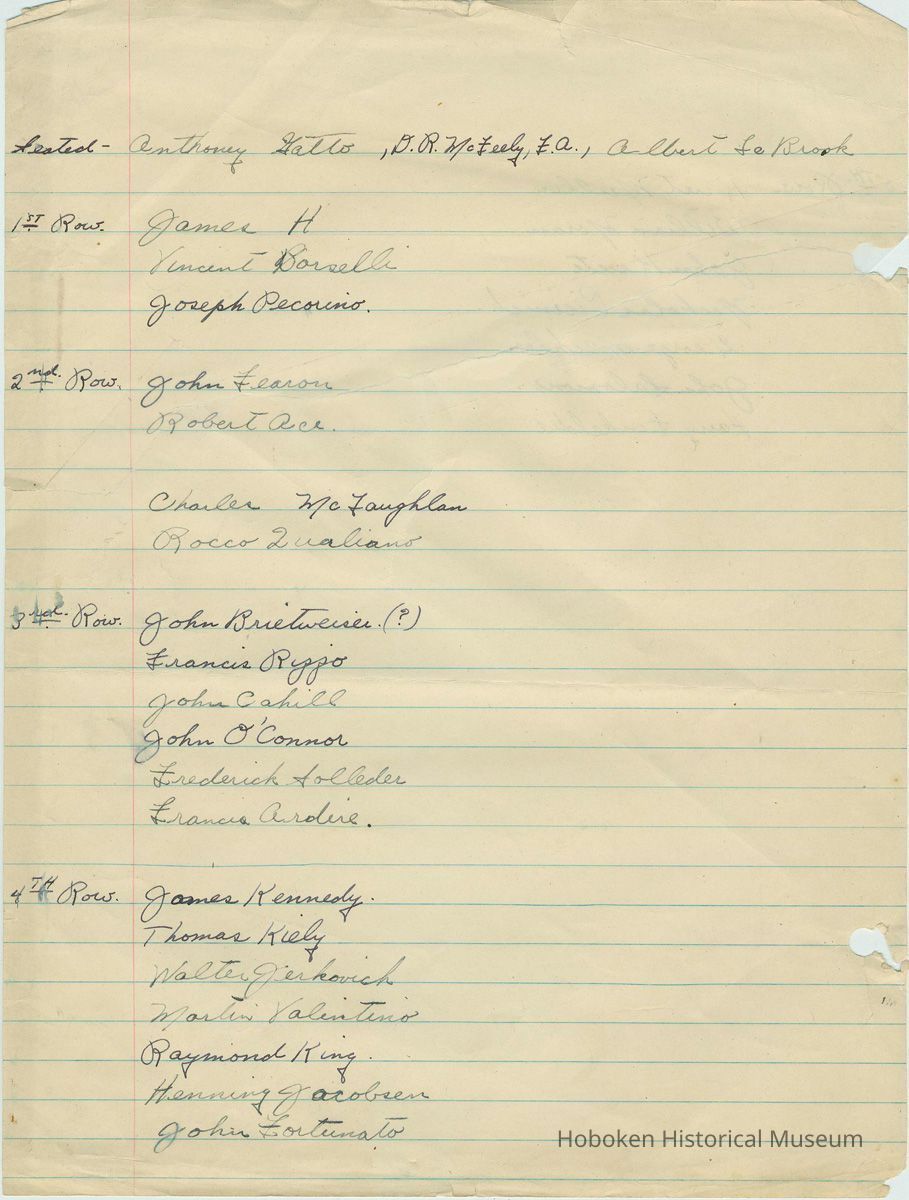 Seated- Anthoney Gatto , D.R. McFeely, F.A., Albert La Brook
1ST Row. James H
Vincent Borselli
Joseph Pecorino.
2nd. Row. John Fearon
Robert Ace.
Charles McLaughlan
Rocco Qualiano
3rd. Row. John Brietweiser. (?)
Francis Rizzo
John Cahill
John O'Connor
Frederick Solleder
Francis Ardire.
4TH Row. James Kennedy.
Thomas Kiely
Walter Jerkovich
Martin Valentino
Raymond King.
Henning Jacobsen
John Fortunato
Hoboken Historical Museum